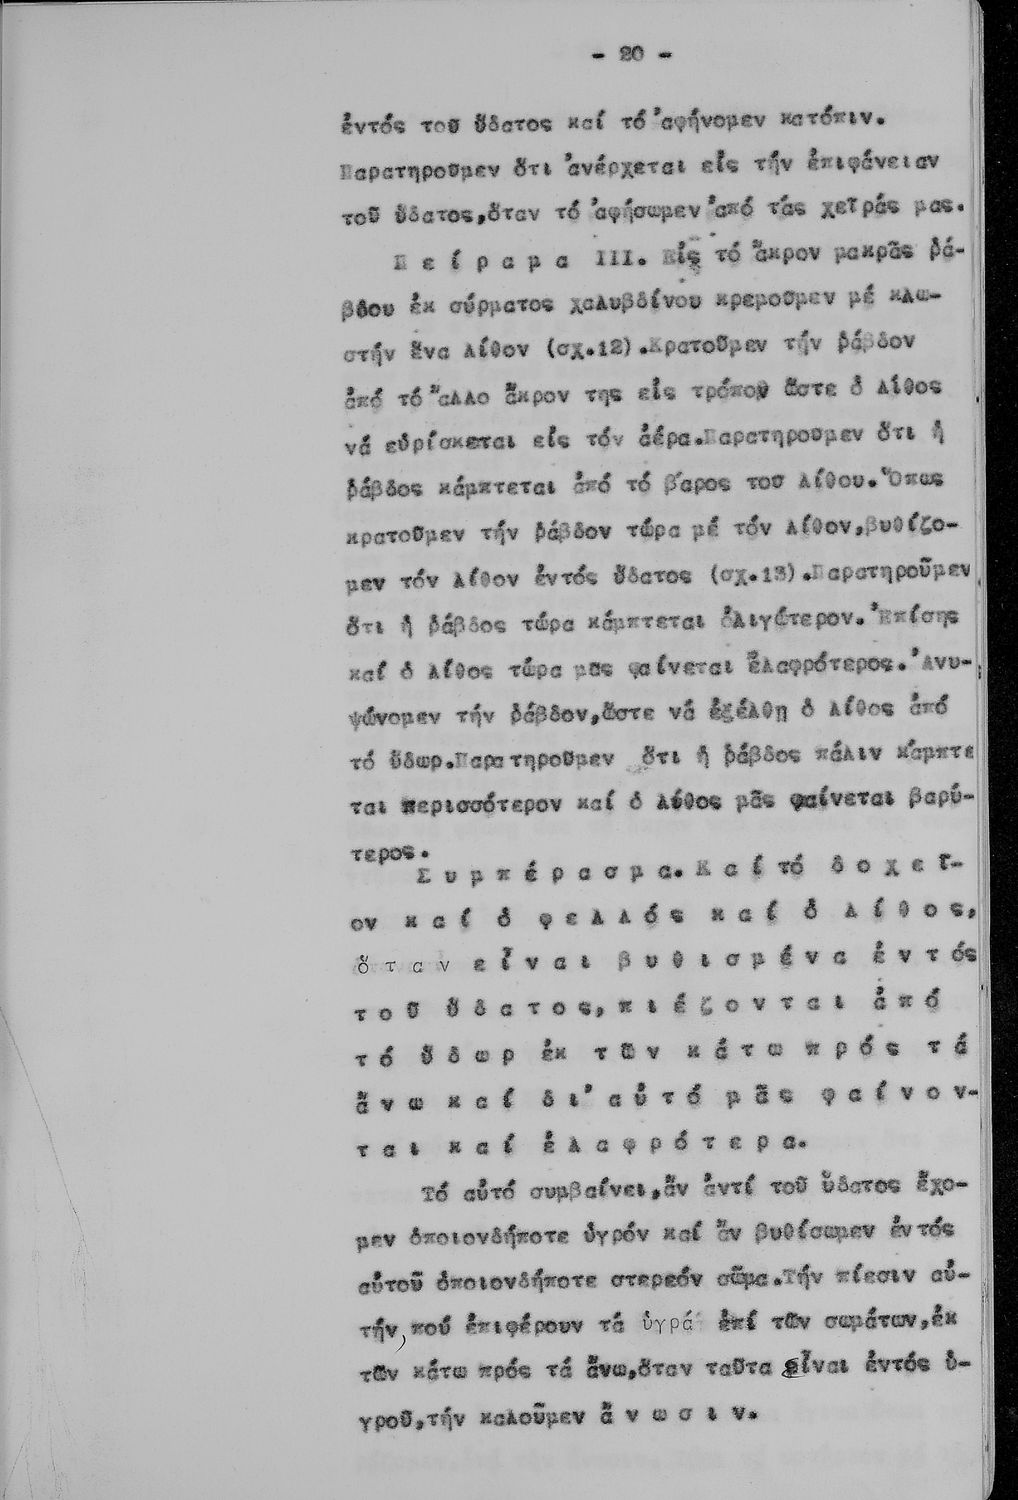 - 20 -
ἐντός τοῦ ὕδατος καί τό ἀφήνομεν κατόπιν.
Παρατηροῦμεν ὅτι ἀνέρχεται εἰς τήν ἐπιφάνειαν
τοῦ ὕδατος,ὅταν τό ἀφήσωμεν ἀπό τάς χεῖράς μας.
Π ε ί ρ α μ α ΙΙΙ. Εἰς τό ἄκρον μακρᾶς ῥά-
βδου ἐκ σύρματος χαλυβδίνου κρεμοῦμεν μέ κλω-
στήν ἕνα λίθον (σχ.12).Κρατοῦμεν τήν ῥάβδον
ἀπό τό ἄλλο ἄκρον της εἰς τρόπον ὥστε ὁ λίθος
νά εὑρίσκεται εἰς τόν ἀέρα.Παρατηροῦμεν ὅτι ἡ
ῥάβδος κάμπτεται ἀπό τό βάρος τοῦ λίθου.Ὅπως
κρατοῦμεν τήν ῥάβδον τώρα μέ τόν λίθον,βυθίζο-
μεν τόν λίθον ἐντός ὕδατος (σχ.13).Παρατηροῦμεν
ὅτι ἡ ῥάβδος τώρα κάμπτεται ὀλιγώτερον.Ἐπίσης
καί ὁ λίθος τώρα μας φαίνεται ἐλαφρότερος.Ἀνυ-
ψώνομεν τήν ῥάβδον,ὥστε νά ἐξέλθῃ ὁ λίθος ἀπό
τό ὕδωρ.Παρατηροῦμεν ὅτι ἡ ῥάβδος πάλιν κάμπτε
ται περισσότερον καί ὁ λίθος μᾶς φαίνεται βαρύ-
τερος.
Σ υ μ π έ ρ α σ μ α. Κ α ί τό δ ο χ ε ῖ-
ον κ α ί ὁ φ ε λ λ ό ς κ α ί ὁ λ ί θ ο ς,
ὅ τ α ν ε ἶ ν α ι β υ θ ι σ μ έ ν α ἐ ν τ ός
τ ο ῦ ὕ δ α τ ο ς, π ι έ ζ ο ν τ α ι ἀ π ό
τ ό ὕ δ ω ρ ἐκ τ ῶν κ ά τ ω π ρ ό ς τ ά
ἄ ν ω κ α ί δ ι' α ὐ τ ό μ ᾶ ς φ α ί ν ο ν-
τ α ι κ α ί ἐ λ α φ ρ ό τ ε ρ α.
Τό αὐτό συμβαίνει,ἄν ἀντί τοῦ ὕδατος ἔχο-
μεν ὁποιονδήποτε ὑγρόν καί ἄν βυθίσωμεν ἐντός
αὐτοῦ ὁποιονδήποτε στερεόν σῶμα.Τήν πίεσιν αὐ-
τήν, πού ἐπιφέρουν τά ὑγρά ἐπί τῶν σωμάτων,ἐκ
τῶν κάτω πρός τά ἄνω,ὅταν ταῦτα εἶναι ἐντός ὑ-
γροῦ,τήν καλοῦμεν ἄ ν ω σ ι ν.